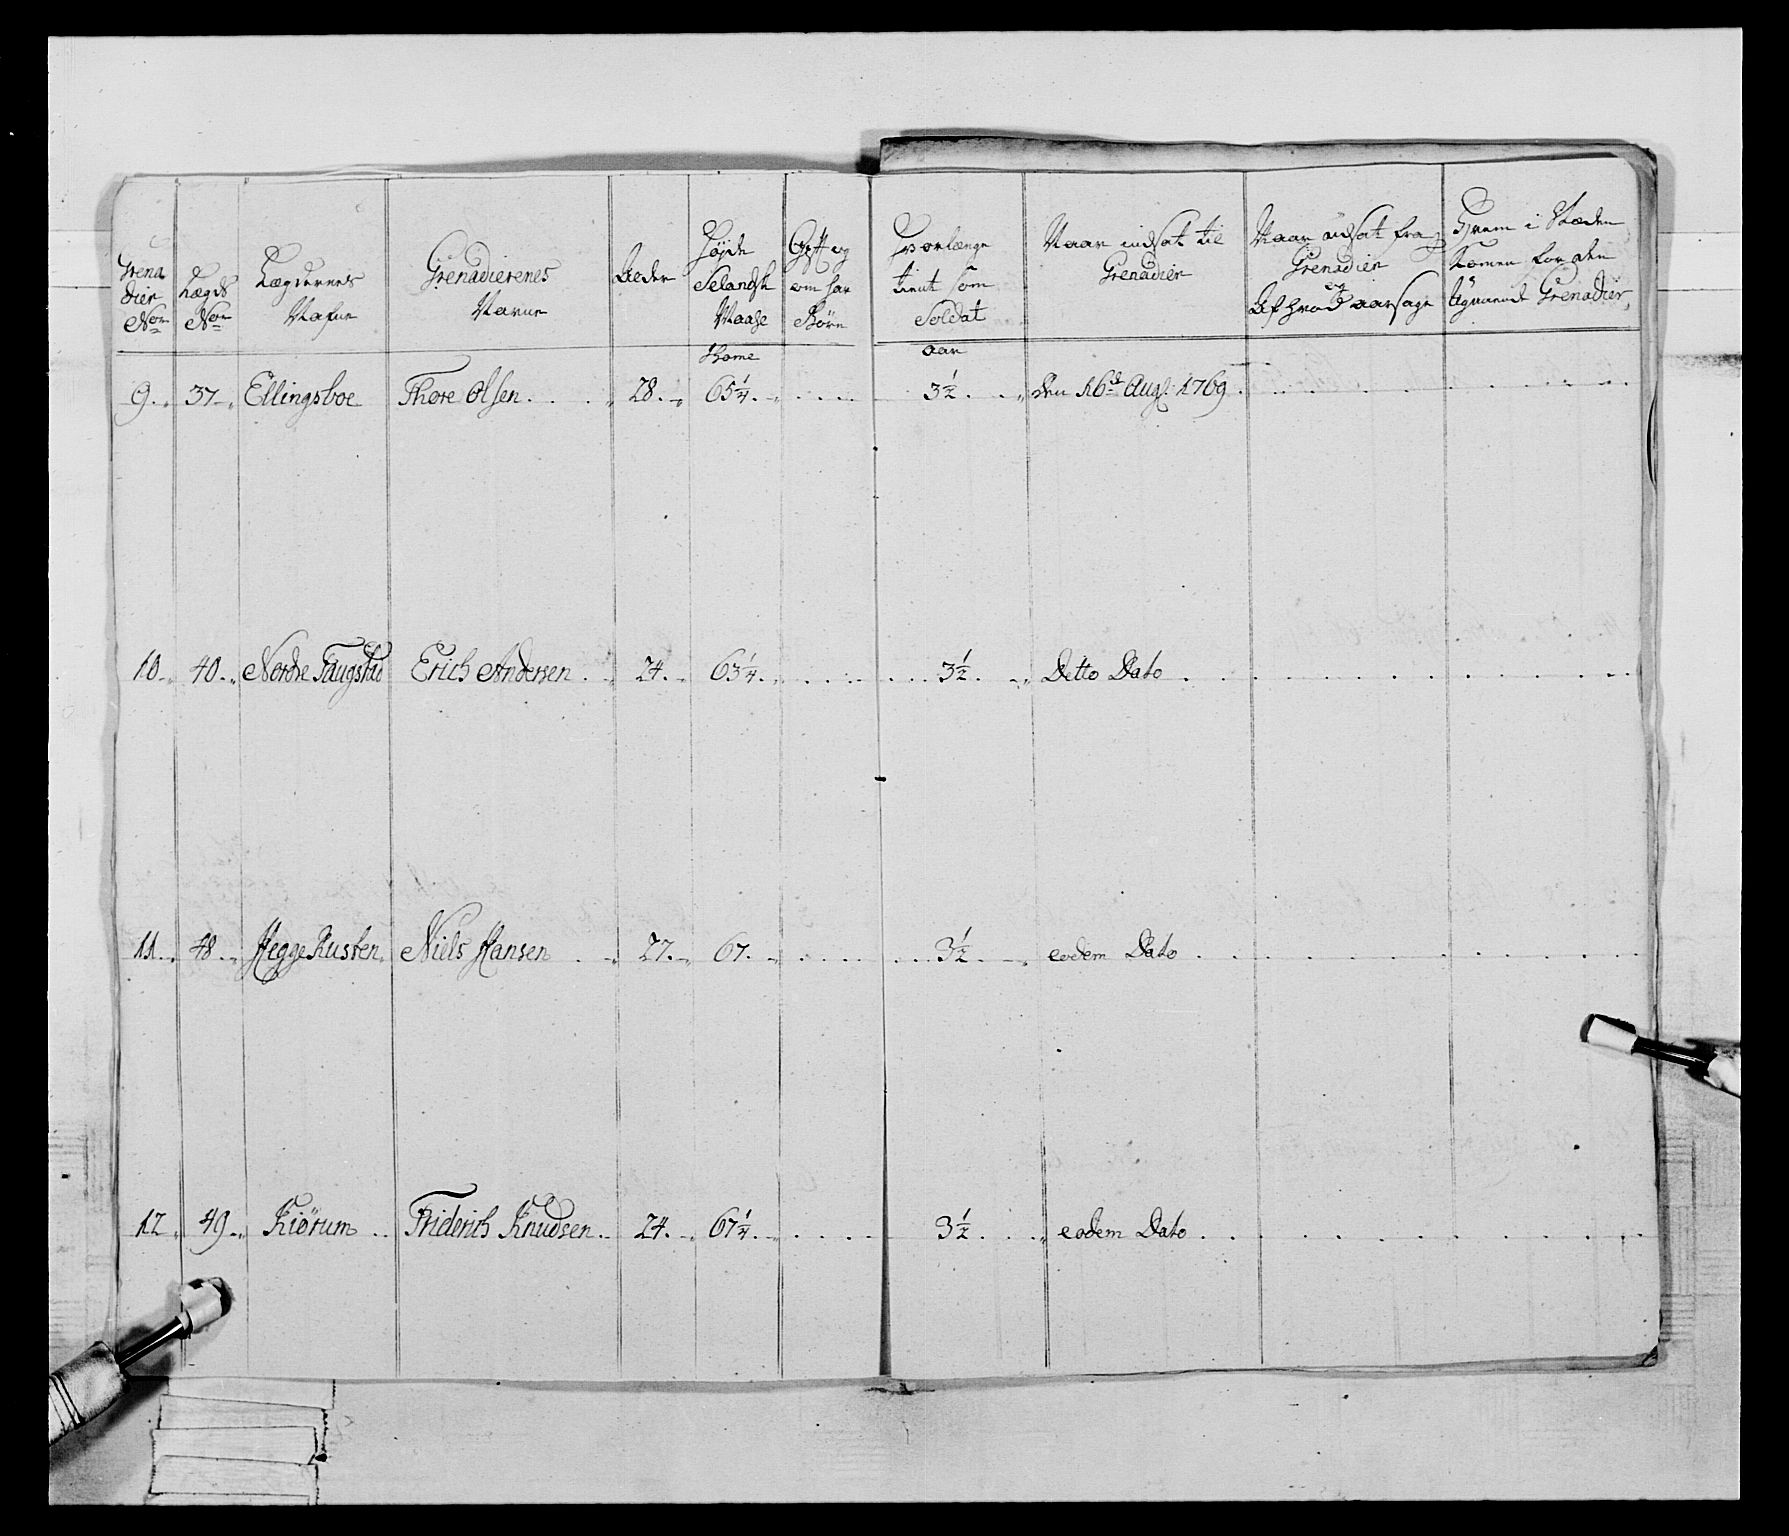 Grena
dier
No
Lægds
No
Lægdernes
Nafne
Grenadierenes
Navne
Alder
Højde
Selandsk
Maale
Gift og
om har
Børn
Hvorlænge
tient som
Soldat
Naar indsat til
Grenadier
Naar udsat fra
Grenadier
og
Af hvad aarsage
Hvem i Stæden
komen for den
afgaaende Grenadier
Tome
aar
9. 37. Ellingsboe Thore Olsen 28. 65¼. 3½. den 16d Aug. 1769
10. 40. Nordre Faugstad Erich Andersen 24. 63¼. 3½. Detto Dato
11. 48. Hegge Rusten Niels Hansen 27. 67. 3½. eodem Dato
12. 49. Kiørum Friderich Knudsen 24. 67¼. 3½. eodem Dato